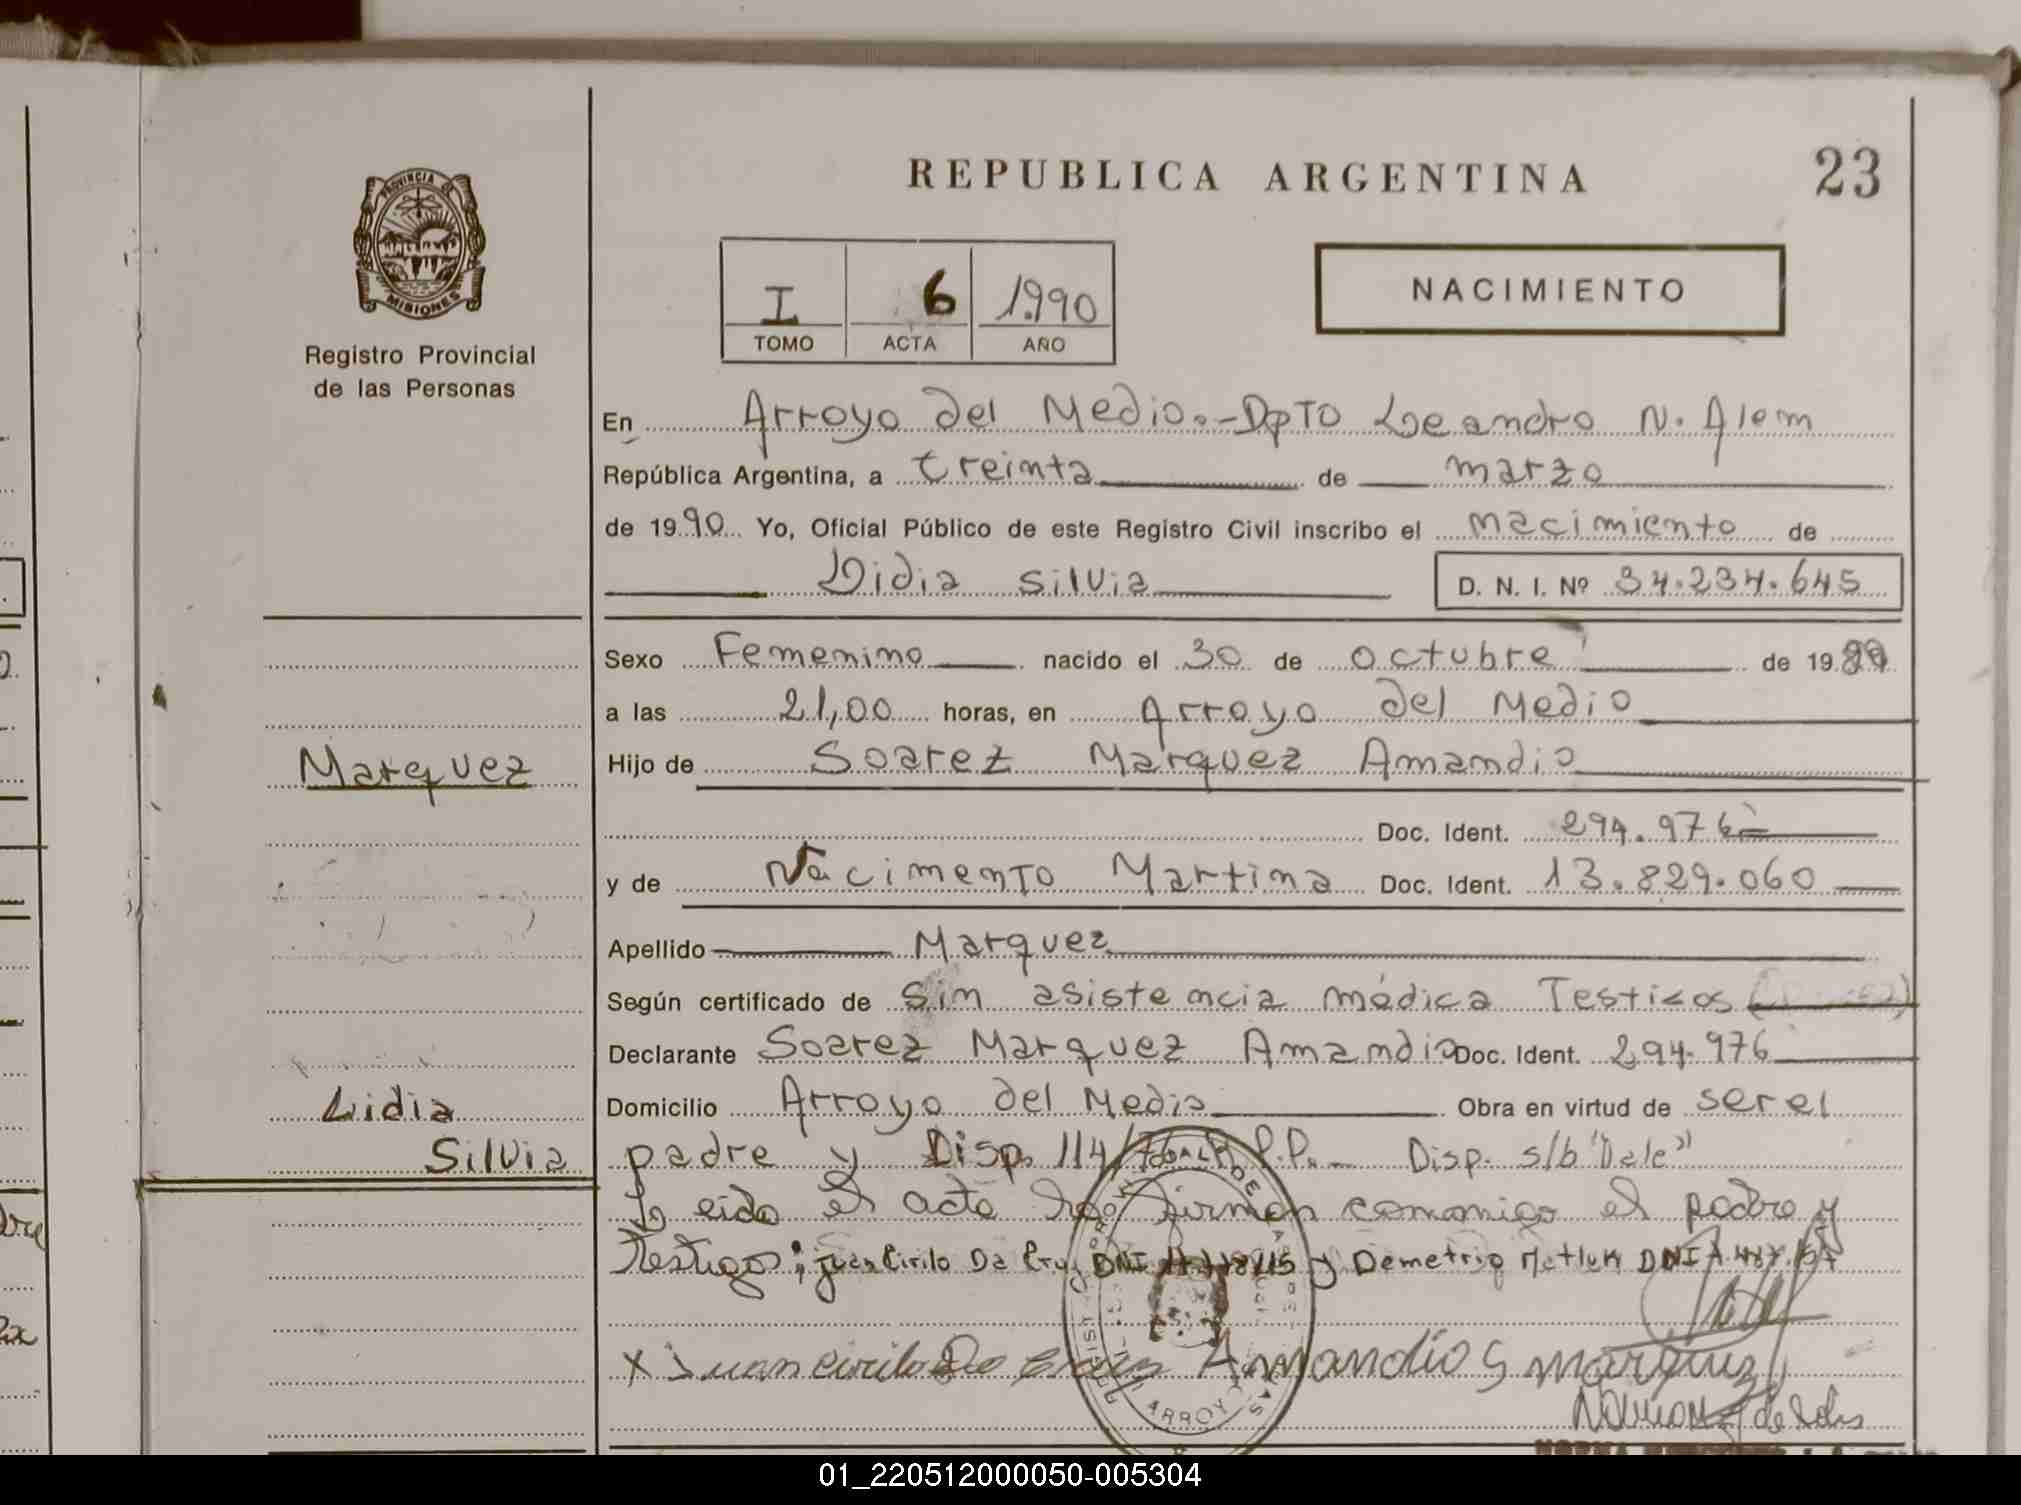 REPUBLICA ARGENTINA
23
PROVINCIA DE
MISIONES
Registro Provincial
de las Personas
I 6 1990
TOMO ACTA AÑO
NACIMIENTO
En Arroyo del Medio.-DpTO Leandro N. Alem
República Argentina, a treinta de marzo
de 1990 Yo, Oficial Público de este Registro Civil inscribo el nacimiento de
Lidia Silvia D. N. I. Nº 34.234.645
Sexo Femenino nacido el 30 de octubre de 1989
a las 21,00 horas, en Arroyo del Medio
Marquez
Hijo de Soarez Marquez Amandio
Doc. Ident. 294.976
y de Nacimento Martina Doc. Ident. 13.829.060
Apellido Marquez
Según certificado de Sin asistencia médica Testigos
Declarante Soarez Marquez Amandio Doc. Ident. 294.976
Lidia
Silvia
Domicilio Arroyo del Medio Obra en virtud de ser el
padre y Disp. 114/76 R.P.P. Disp. s/b "Dele"
Leida el acta la firman conmigo el padre y
Testigos; Juan Cirilo Da Cruz DNI y Demetrio DNI
ARROY
x Juan Cirilo Da Cruz Amandio S Marquez
01_220512000050-005304